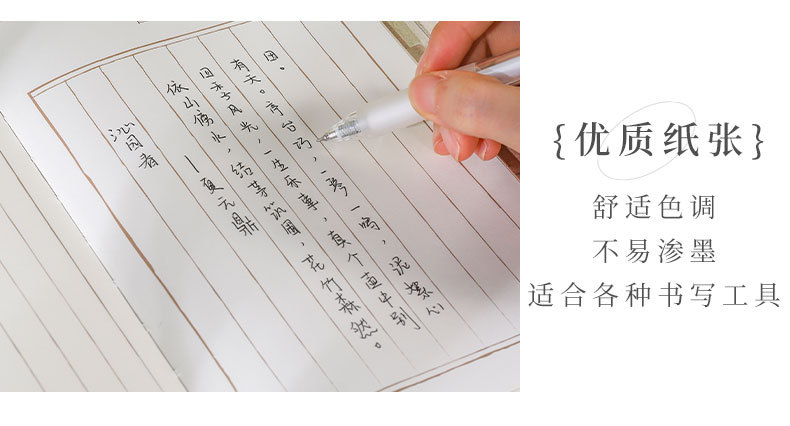 沁园春
—夏元鼎
依山傍水，结茅筑圃，花竹森然。
四季风光，一生乐事，真个壶中别
有天。亭台巧，一琴一鹤，泥絮心
田。
{优质纸张}
舒适色调
不易渗墨
适合各种书写工具